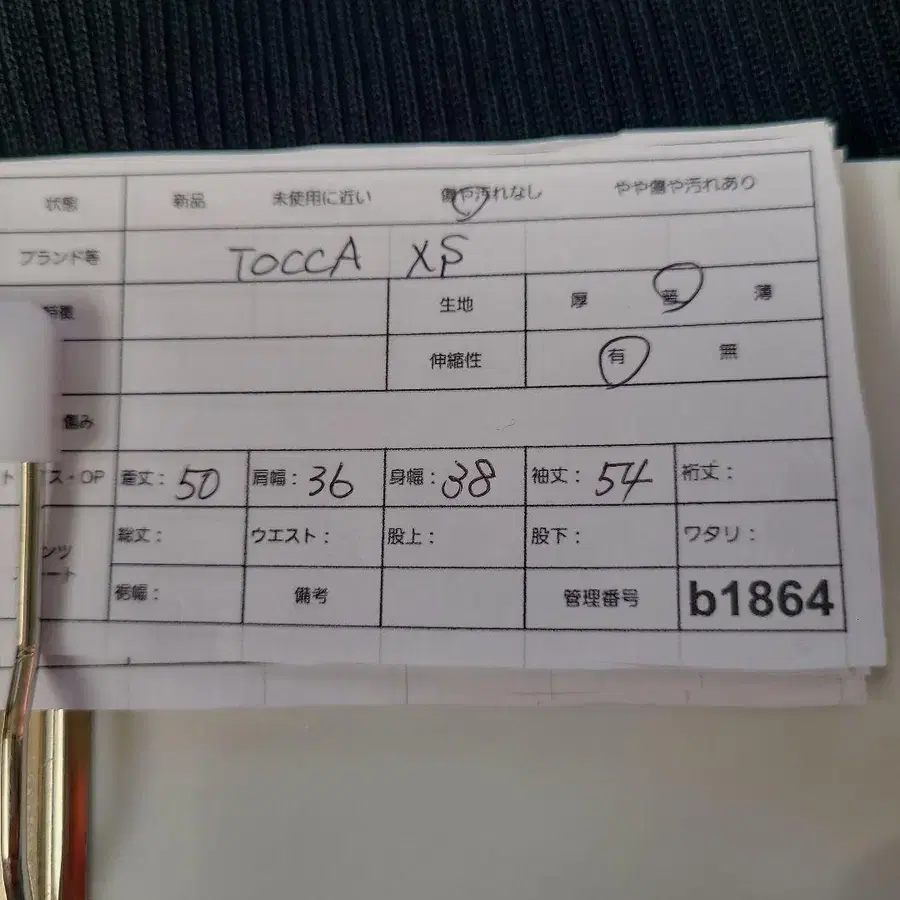 状態 新品 未使用に近い 傷や汚れなし やや傷や汚れあり
ブランド等 TOCCA XS
生地 厚 普 薄
伸縮性 有 無
傷み
ト ス・OP 着丈: 50 肩幅: 36 身幅: 38 袖丈: 54 裄丈:
ンツ 総丈: ウエスト: 股上: 股下: ワタリ:
ート 裾幅: 備考 管理番号 b1864